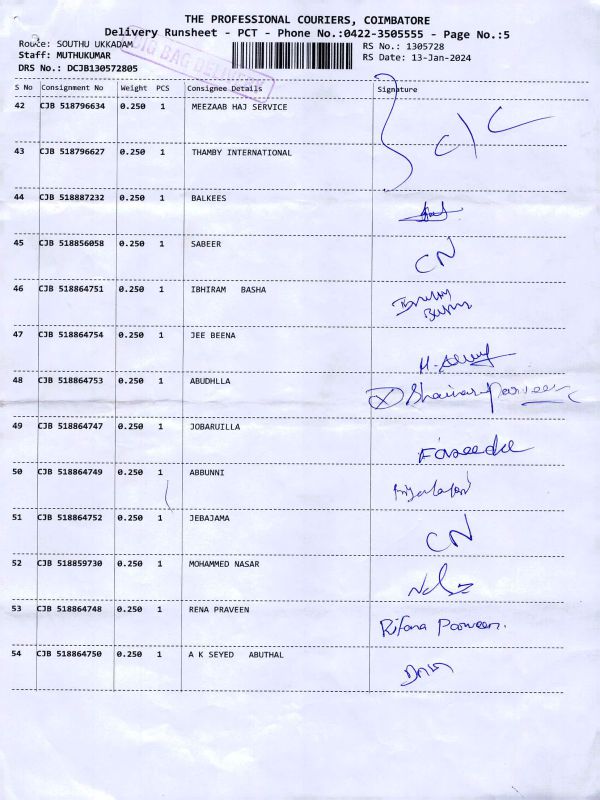 THE PROFESSIONAL COURIERS, COIMBATORE
Delivery Runsheet - PCT - Phone No.:0422-3505555 - Page No.:5
Route: SOUTHU UKKADAM
RS No.: 1305728
Staff: MUTHUKUMAR
RS Date: 13-Jan-2024
DRS No.: DCJB130572805
BIG BAG DELIVERY
S No Consignment No Weight PCS Consignee Details Signature
42 CJB 518796634 0.250 1 MEEZAAB HAJ SERVICE
43 CJB 518796627 0.250 1 THAMBY INTERNATIONAL
44 CJB 518887232 0.250 1 BALKEES
45 CJB 518856058 0.250 1 SABEER CN
46 CJB 518864751 0.250 1 IBHIRAM BASHA
47 CJB 518864754 0.250 1 JEE BEENA
48 CJB 518864753 0.250 1 ABUDHLLA
49 CJB 518864747 0.250 1 JOBARUILLA Fareedha
50 CJB 518864749 0.250 1 ABBUNNI
51 CJB 518864752 0.250 1 JEBAJAMA CN
52 CJB 518859730 0.250 1 MOHAMMED NASAR
53 CJB 518864748 0.250 1 RENA PRAVEEN Rifana Parveen.
54 CJB 518864750 0.250 1 A K SEYED ABUTHAL